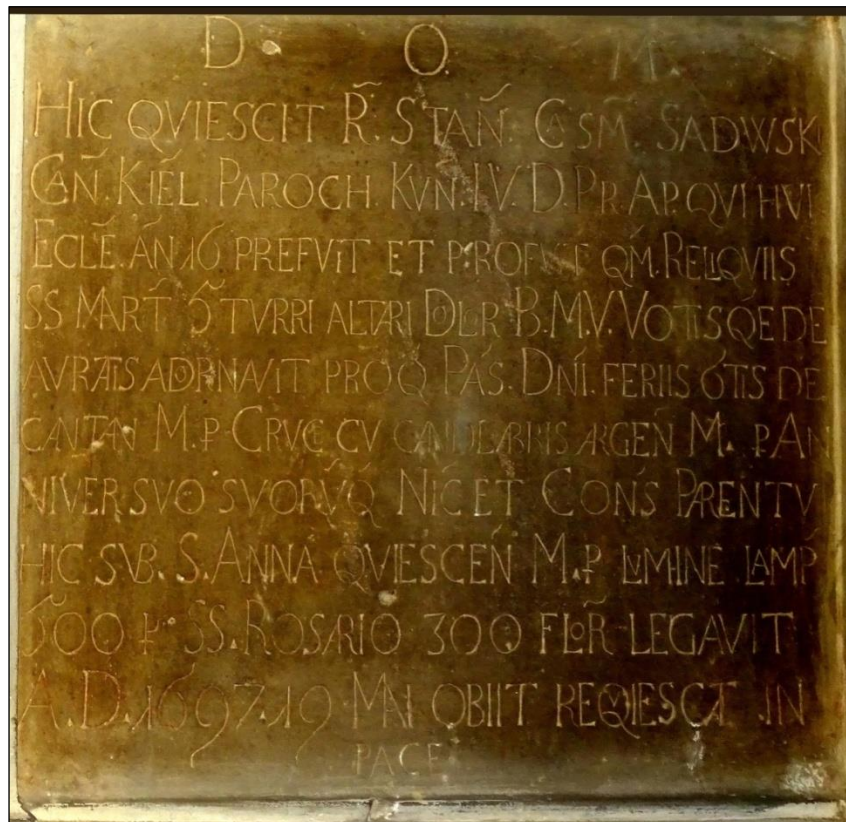 D. O. M.
HIC QVIESCIT R̃. STAÑ. CASM̃. SADWSKI
CAÑ. KIẼL. PAROCH. KVN. I.V.D. PR. AP. QVI HVI
ECLẼ. AÑ 16 PREFVIT ET PROFVIT QM̃. RELIQVIIS
SS MART̃ TVRRI ALTARI DOLOR B.M.V. VOTISQ̃E DE
AVRATIS ADORNAVIT PROQ PAŚ. DNÍ. FERIIS DE
CANTAN M. P CRVCE CV CANDELABRIIS ARGEÑ M. P. AN
NIVER SVO SVORṼQ NIĆ ET CONŚ PARENTV
HIC SVB. S. ANNA QVIESCEÑ M. P LVMINE LAMP̃
500 P. SS. ROSARIO 300 FLOR̃ LEGAVIT
A. D. 1697. 19 MAI OBIIT REQVIESCAT IN
PACE